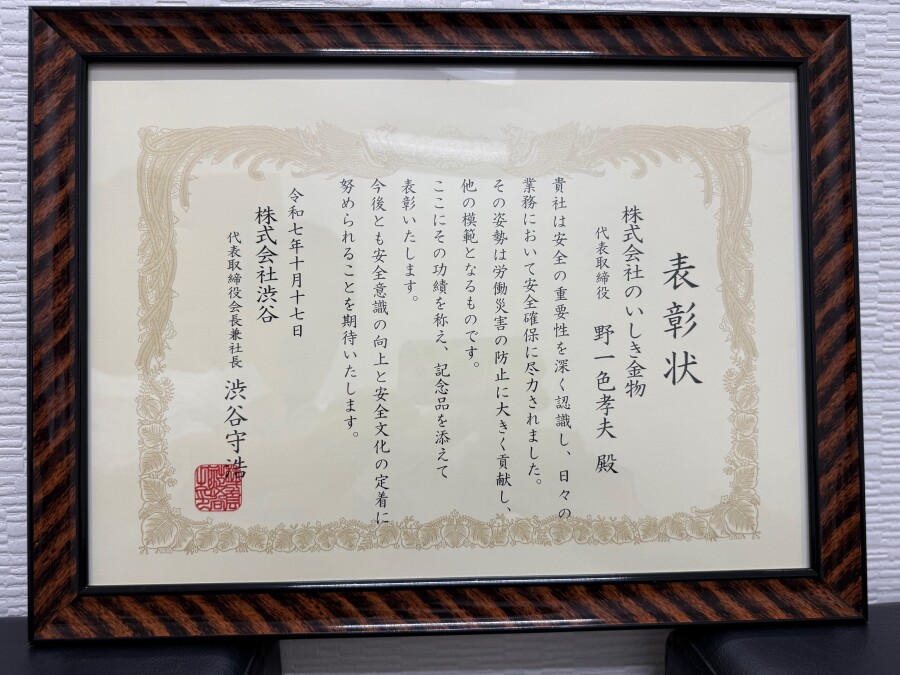 表彰状
株式会社のいしき金物
代表取締役 野一色孝夫 殿
貴社は安全の重要性を深く認識し、日々の
業務において安全確保に尽力されました。
その姿勢は労働災害の防止に大きく貢献し、
他の模範となるものです。
ここにその功績を称え、記念品を添えて
表彰いたします。
今後とも安全意識の向上と安全文化の定着に
努められることを期待いたします。
令和七年十月十七日
株式会社渋谷
代表取締役会長兼社長 渋谷守浩